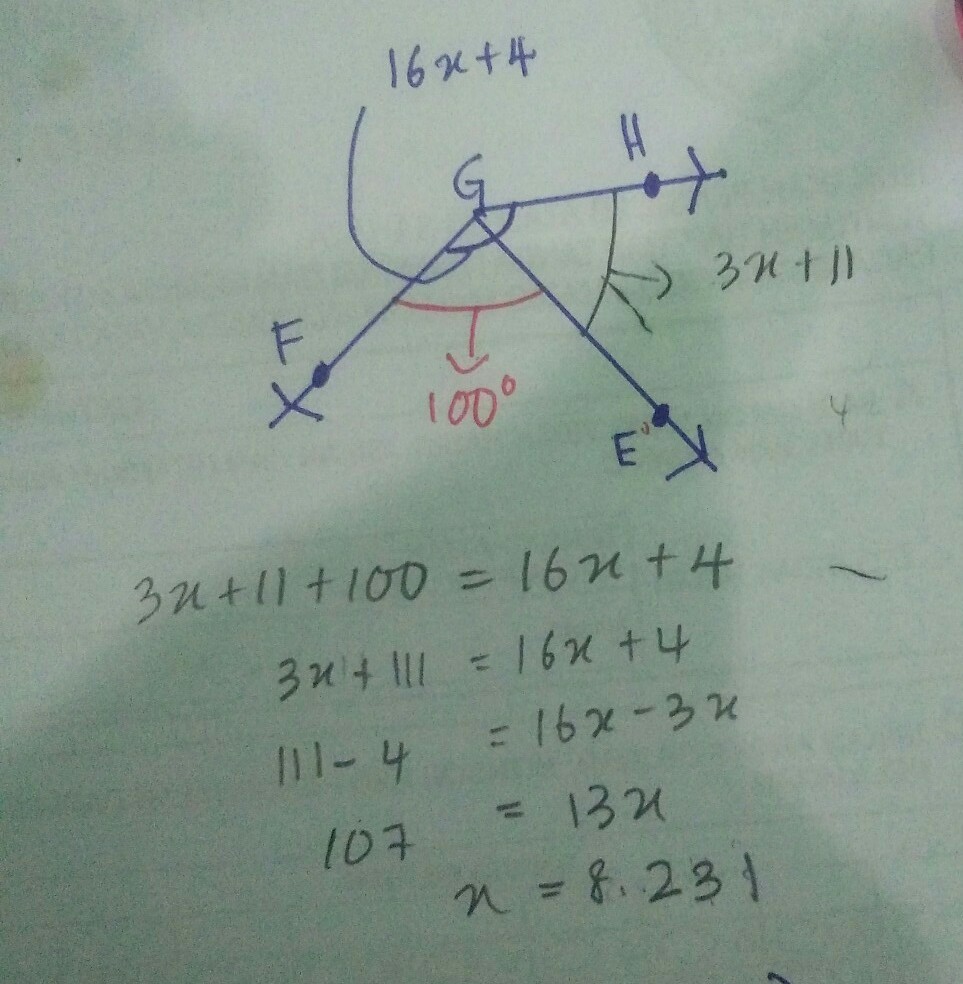 16x+4
H
G
3x+11
F
100°
E
4
3x+11+100 = 16x+4
3x+111 = 16x+4
111-4 = 16x-3x
107 = 13x
x = 8.231